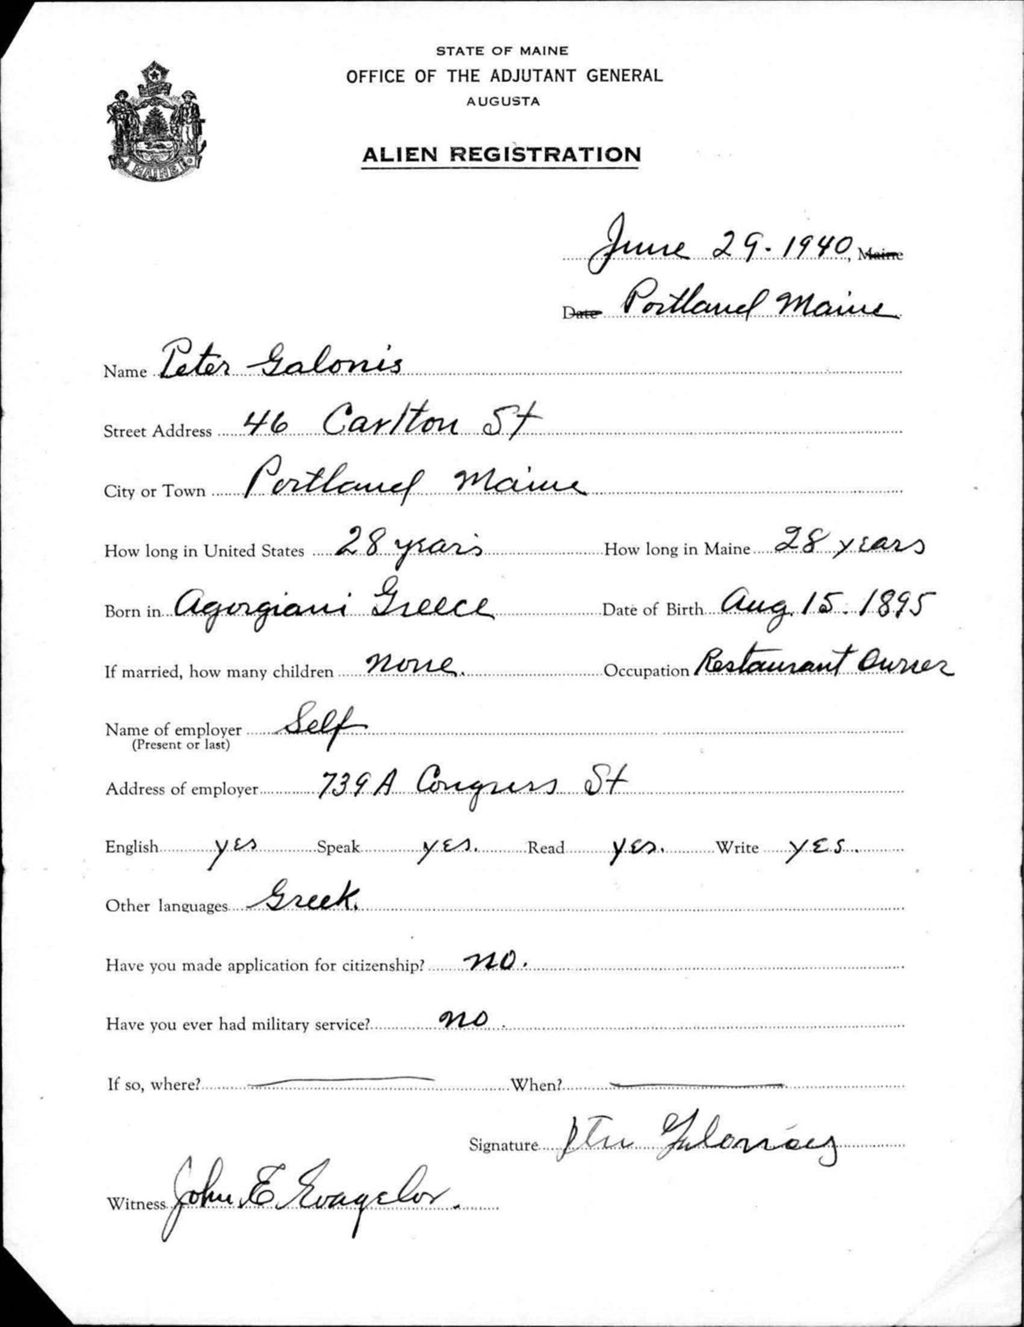 STATE OF MAINE
OFFICE OF THE ADJUTANT GENERAL
AUGUSTA
ALIEN REGISTRATION
MAINE
June 29-1940, Maine
Date Portland Maine
Name Peter Galonis
Street Address 46 Carlton St
City or Town Portland Maine
How long in United States 28 years How long in Maine 28 years
Born in Agorgiani Greece Date of Birth Aug. 15. 1895
If married, how many children none. Occupation Restaurant Owner
Name of employer Self
(Present or last)
Address of employer 739A Congress St
English yes Speak yes. Read yes. Write yes.
Other languages Greek.
Have you made application for citizenship? no.
Have you ever had military service? no.
If so, where? When?
Signature
Witness John E Evagelor.